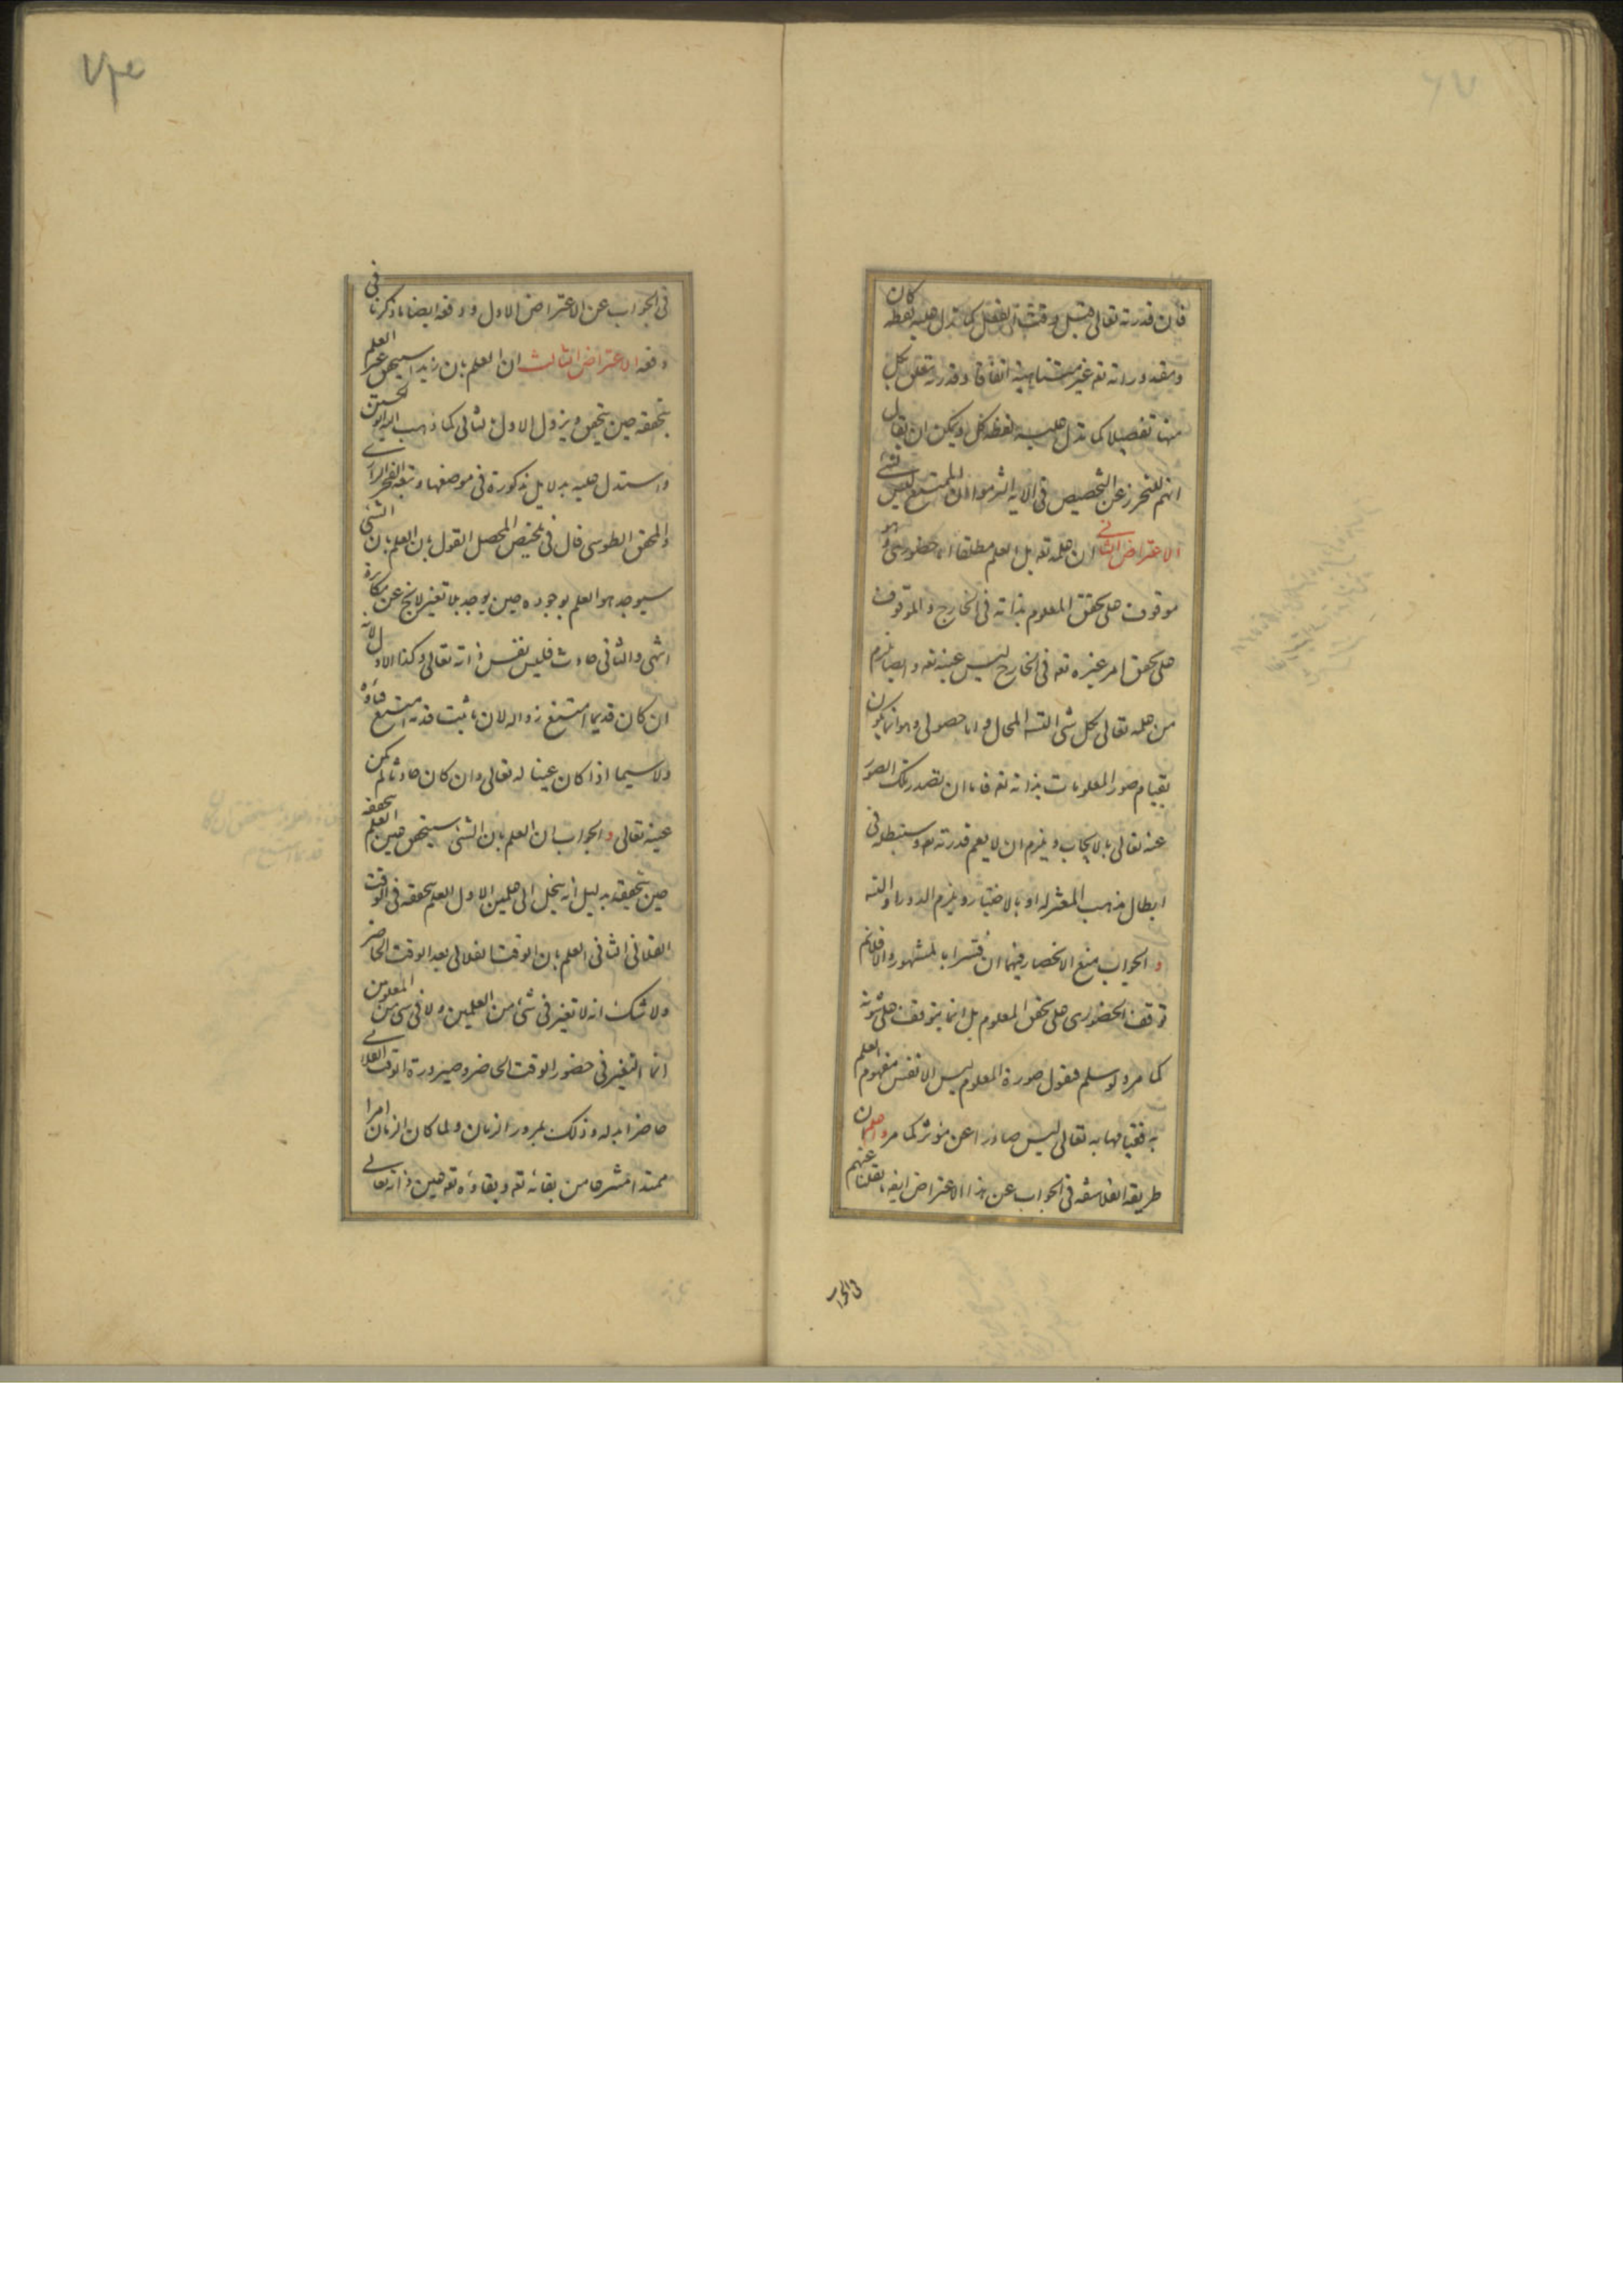 فان قدرته تعالى قبل وقت الفعل كما تدل عليه لفظة كان
ومقدوراته تعه غير متناهية اتفاقا وقدرته تتعلق بكل
منها تفصيلا كما تدل عليه لفظة كل ويمكن ان يقال
انهم للتحرز عن التخصيص في الآية التزموا ان الممتنع ليس بشئ
الاعتراض الثاني ان علمه تعه بل العلم مطلقا اما حضورى وهو
موقوف على تحقق المعلوم بذاته في الخارج والموقوف
على تحقق امر غيره تعه في الخارج ليس عينه تعه وايضا يلزم
من علمه تعالى بكل شئ التسه المحال واما حصولى وهو انما يكون
بقيام صور المعلومات بذاته تعه فاما ان تصدر تلك الصور
عنه تعالى بالايجاب ويلزم ان لا يعم قدرته تعه وسنبطله في
ابطال مذهب المعتزلة او بالاختيار ويلزم الدور او التسه
والجواب منع الانحصار فيهما ان فسرا بالمشهور والا فلانم
توقف الحضورى على تحقق المعلوم بل انما يتوقف على ثبوته
كما مر ولو سلم فنقول صورة المعلوم ليس الا نفس مفهوم العلم
به فقيامها به تعالى ليس صادرا عن مؤثر كما مر واعلم ان
طريقة الفلاسفة في الجواب عن هذا الاعتراض ايضه نقلنا عنهم
في الجواب
في الجواب عن الاعتراض الاول ودفعه ايضا ما ذكرنا في
دفعه الاعتراض الثالث ان العلم بان زيدا سيتحقق غير العلم
بتحققه حين يتحقق ويزول الاول بالثانى كما ذهب اليه ابو الحسين
واستدل عليه بدلايل مذكورة في موضعها وتبعه الفخر الرازى
والمحقق الطوسى قال في تلخيص المحصل القول بان العلم بان الشئ
سيوجد هو العلم بوجوده حين يوجد بلا تغير لا يخ عن مكابرة
انتهى والثانى حادث فليس نفس ذاته تعالى وكذا الاول لانه
ان كان قديما امتنع زواله لان ما ثبت قدمه امتنع فناؤه
ولا سيما اذا كان عينا له تعالى وان كان حادثا لم يكن
عينه تعالى والجواب ان العلم بان الشئ سيتحقق حين العلم بتحققه
حين تحققه بدليل انه ينحل الى علمين الاول العلم بتحققه في الوقت
الفلانى الثانى العلم بان الوقت الفلانى بعد الوقت الحاضر
ولا شك انه لا تغير في شئ من العلمين ولا في شئ من المعلومين
انما التغير في حضور الوقت الحاضر وصيرورة الوقت الفلانى
حاضرا بدله وذلك بمرور الزمان ولما كان الزمان امرا
ممتدا منتزعا من بقائه تعه وبقاؤه تعه عين ذاته تعالى